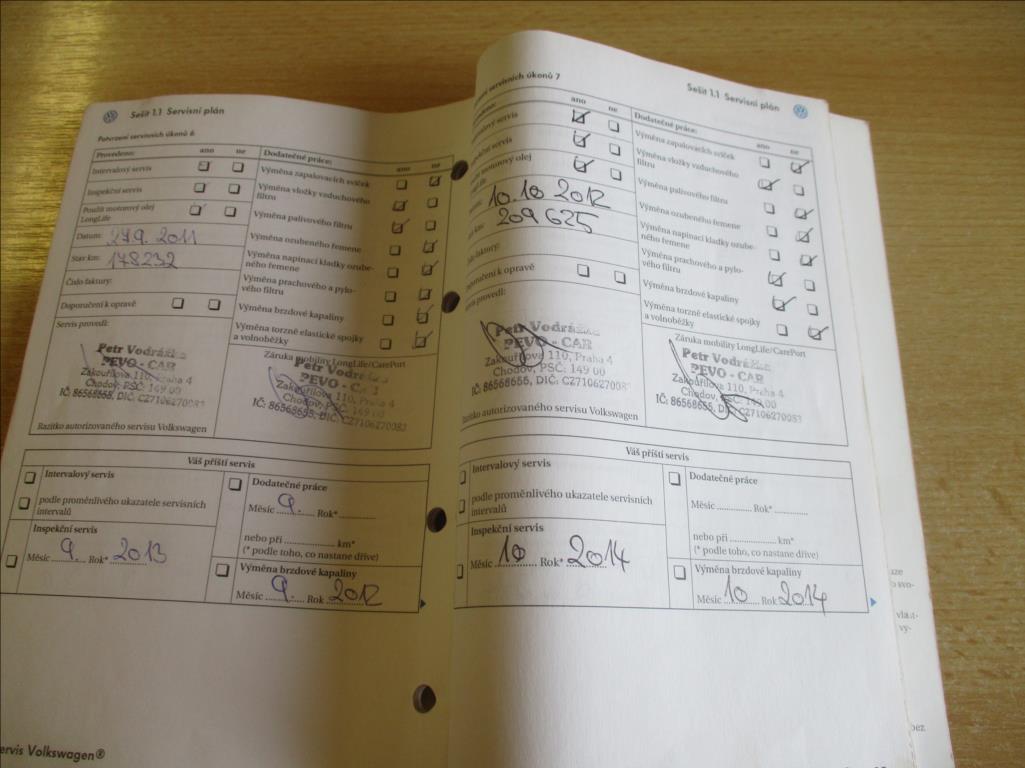 Sešit 1.1 Servisní plán
Potvrzení servisních úkonů 6
Provedeno: ano ne
Intervalový servis
Inspekční servis
Použit motorový olej
LongLife
Datum: 27.9. 2011
Stav km: 178232
Číslo faktury:
Doporučení k opravě
Servis provedl:
Petr Vodrážka
PEVO - CAR
Zakouřilova 110, Praha 4
Chodov, PSČ: 149 00
IČ: 86568655, DIČ: CZ7106270083
Razítko autorizovaného servisu Volkswagen
Dodatečné práce: ano ne
Výměna zapalovacích svíček
Výměna vložky vzduchového
filtru
Výměna palivového filtru
Výměna ozubeného řemene
Výměna napínací kladky ozube-
ného řemene
Výměna prachového a pylo-
vého filtru
Výměna brzdové kapaliny
Výměna torzně elastické spojky
a volnoběžky
Záruka mobility LongLife/CarePort
Petr Vodrážka
PEVO - CAR
Zakouřilova 110, Praha 4
Chodov, PSČ: 149 00
IČ: 86568655, DIČ: CZ7106270083
Váš příští servis
Intervalový servis
podle proměnlivého ukazatele servisních
intervalů
Inspekční servis
Měsíc 9. Rok* 2013
Dodatečné práce
Měsíc 9. Rok*
nebo při km*
(* podle toho, co nastane dříve)
Výměna brzdové kapaliny
Měsíc 9. Rok 2012
ervis Volkswagen®
Sešit 1.1 Servisní plán
servisních úkonů 7
ano ne
servis
servis
motorový olej
10.10 2012
209 625
faktury:
k opravě
servis provedl:
Petr Vodrážka
PEVO - CAR
Zakouřilova 110, Praha 4
Chodov, PSČ: 149 00
IČ: 86568655, DIČ: CZ7106270083
Razítko autorizovaného servisu Volkswagen
Dodatečné práce: ano ne
Výměna zapalovacích svíček
Výměna vložky vzduchového
filtru
Výměna palivového filtru
Výměna ozubeného řemene
Výměna napínací kladky ozube-
ného řemene
Výměna prachového a pylo-
vého filtru
Výměna brzdové kapaliny
Výměna torzně elastické spojky
a volnoběžky
Záruka mobility LongLife/CarePort
Petr Vodrážka
PEVO - CAR
Zakouřilova 110, Praha 4
Chodov, PSČ: 149 00
IČ: 86568655, DIČ: CZ7106270083
Váš příští servis
Intervalový servis
podle proměnlivého ukazatele servisních
intervalů
Inspekční servis
Měsíc 10 Rok* 2014
Dodatečné práce
Měsíc Rok*
nebo při km*
(* podle toho, co nastane dříve)
Výměna brzdové kapaliny
Měsíc 10 Rok 2014